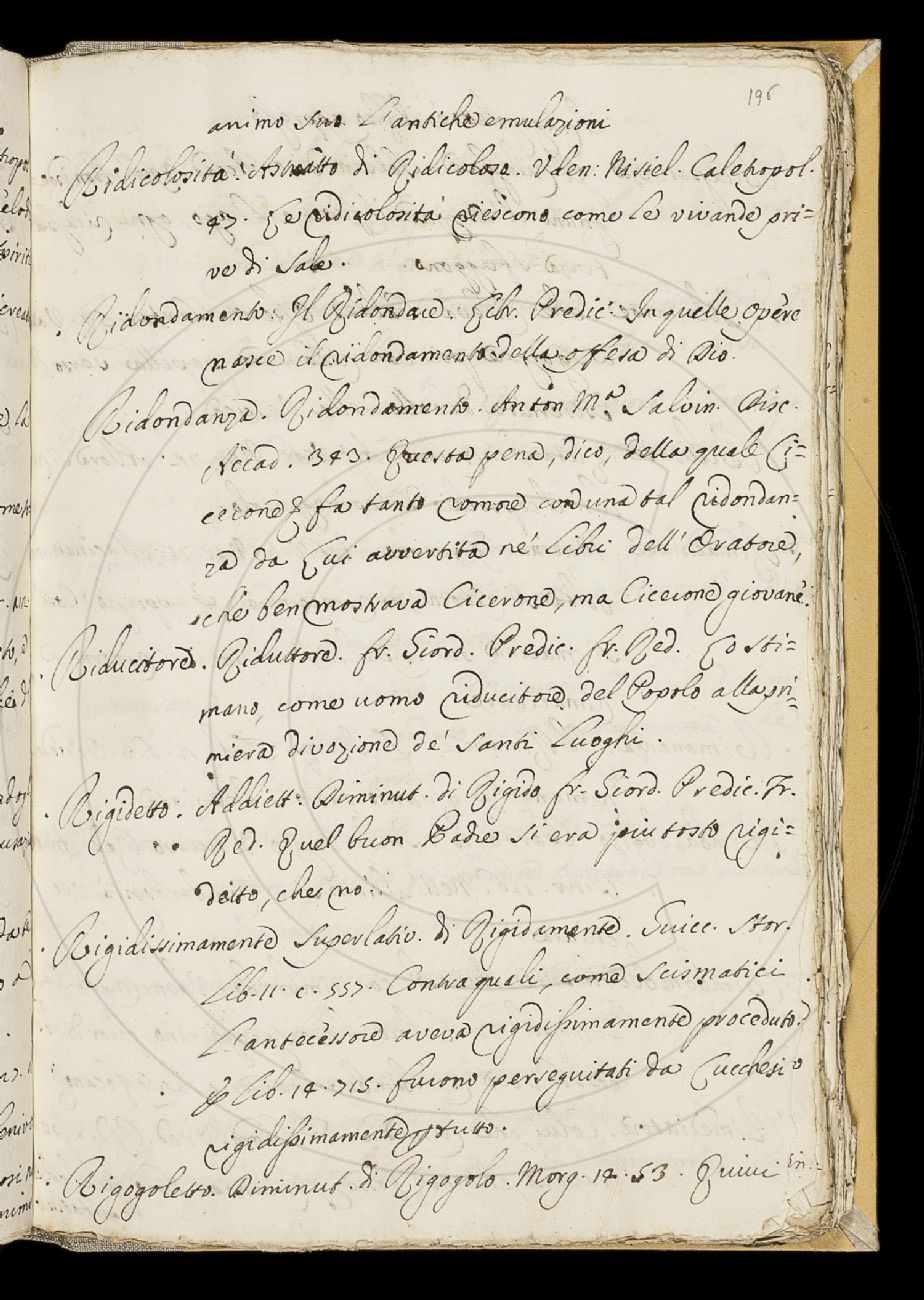 196
animo suo l'antiche emulazioni
Ridicolosità: Astratto di Ridicoloso. Uden: Nisiel. Caletropol.
47. Le ridicolosità riescono come le vivande pri=
ve di sale.
Ridondamento: Il Ridondare. Segr. Predic: In quelle opere
nasce il ridondamento della offesa di Dio.
Ridondanza. Ridondamento. Anton Mª. Salvin. Disc.
Accad. 343. Questa pena, dico, della quale Ci=
cerone fa tanto romore con una tal ridondan=
za da lui avvertita ne' Libri dell'Oratore,
che ben mostrava Cicerone, ma Cicerone giovane.
Riducitore. Riduttore. fr. Giord. Predic. fr. Red. Lo sti=
mano, come uomo riducitore del Popolo alla pri=
miera divozione de' Santi Luoghi.
Rigidetto: Addiett: Diminut. di Rigido fr. Giord. Predic. Fr.
Red. Quel buon Padre si era piu tosto rigi=
detto, che nò.
Rigidissimamente Superlativ. di Rigidamente. Guicc. Stor.
Lib. 11. c. 557. Contra quali, come scismatici
l'antecessore aveva rigidissimamente proceduto.
Lib. 14. 715. furono perseguitati da Lucchesi
rigidissimamente tutto.
Rigogoletto. Diminut. di Rigogolo. Morg. 14. 53. Quivi in=